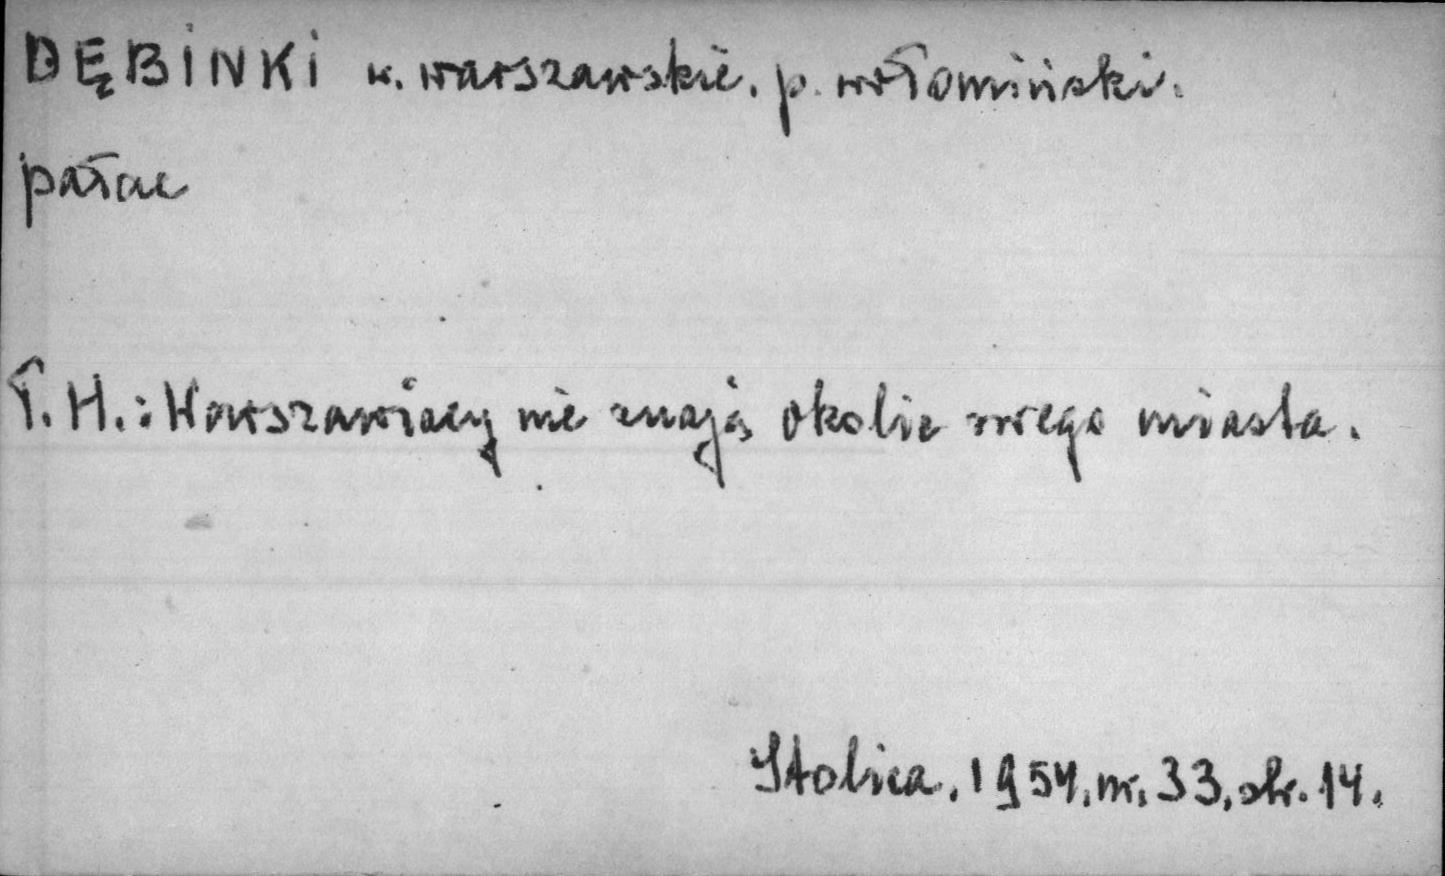 DĘBINKI w. warszawskie. p. wołomiński.
pałac
T. H.: Warszawiacy nie znają okolic swego miasta.
Stolica, 1954, nr. 33, str. 14.